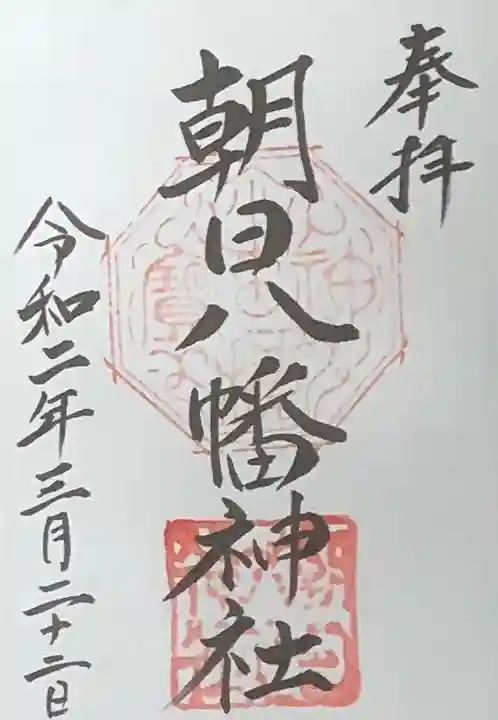 奉拝
朝日八幡神社
令和二年三月二十二日